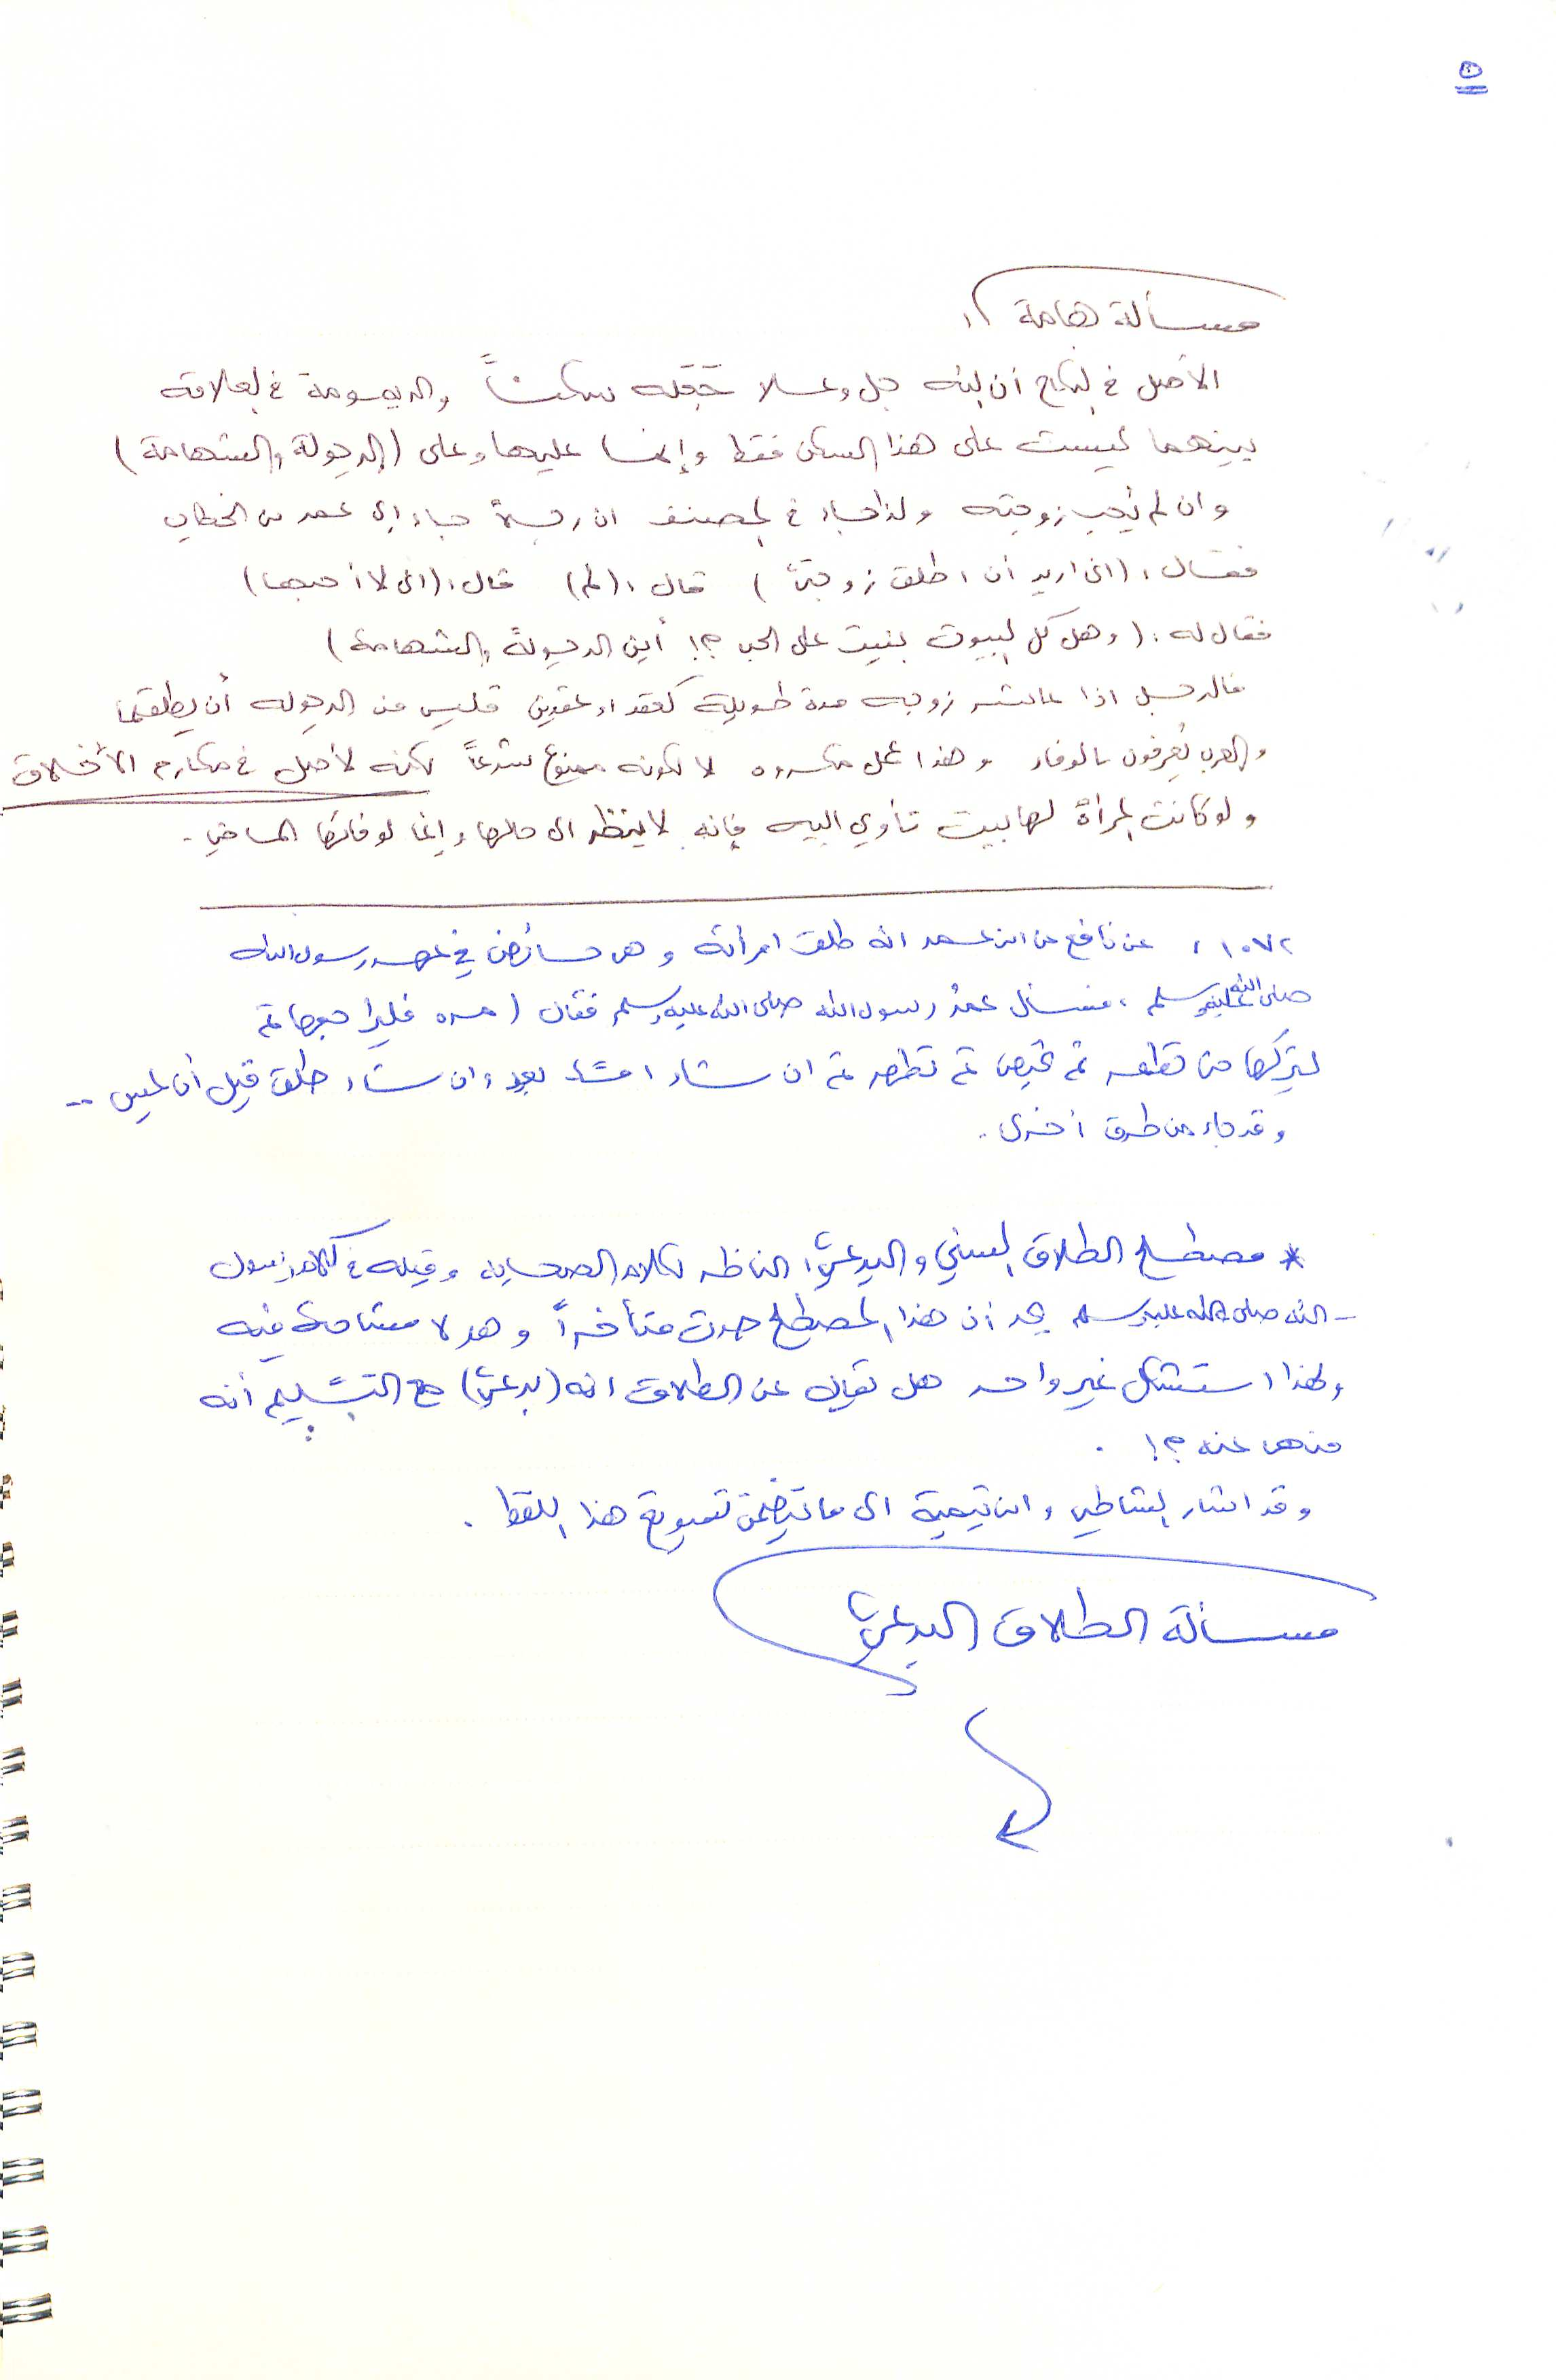 ٥
مسألة هامة :
الأصل في النكاح أن الله جل وعلا جعله سكناً والديمومة في العلاقة
بينهما ليست على هذا السكن فقط وإنما عليها وعلى (الرجولة والشهامة)
وان لم يُحب زوجته ولذا جاء في المصنف ان رجلاً جاء إلى عمر بن الخطاب
فقال : (اني اريد أن اطلق زوجتي) قال : (لم) قال : (اني لا أحبها)
فقال له : (وهل كل البيوت بنيت على الحب ؟! أين الرجولة والشهامة)
فالرجل اذا عاشر زوجه مدة طويلة كعقد او عقدين فليس من الرجوله أن يطلقها
والعرب يُعرفون بالوفاء وهذا عمل مكروه لا لكونه ممنوع شرعاً لكنه لأصل في مكارم الأخلاق
ولو كانت المرأة لها بيت تأوي اليه فإنه لا ينظر الى حالها وإنما لوفائها الماضي .
١٠٧٢ : عن نافع عن ابن عمر انه طلق امرأته وهي حائض في عهد رسول الله
صلى الله عليه وسلم ، فسأل عمرُ رسول الله صلى الله عليه وسلم فقال (مره فليراجعها ثم
ليتركها حتى تطهر ثم تحيض ثم تطهر ثم ان شاء امسك بعد وان شاء طلق قبل أن يمس ..
وقد جاء من طرق أخرى .
* مصطلح الطلاق السني والبدعي : الناظر لكلام الصحابه وقبله في كلام رسول
الله صلى الله عليه وسلم يجد أن هذا المصطلح حدث متأخراً وهو لا مشاحة فيه
ولهذا استشكل غير واحد هل يقال عن الطلاق انه (بدعي) مع التسليم أنه
منهي عنه ؟! .
وقد اشار الشاطبي وابن تيمية الى ما يتضمن تسويغ هذا اللفظ .
مسألة الطلاق البدعي